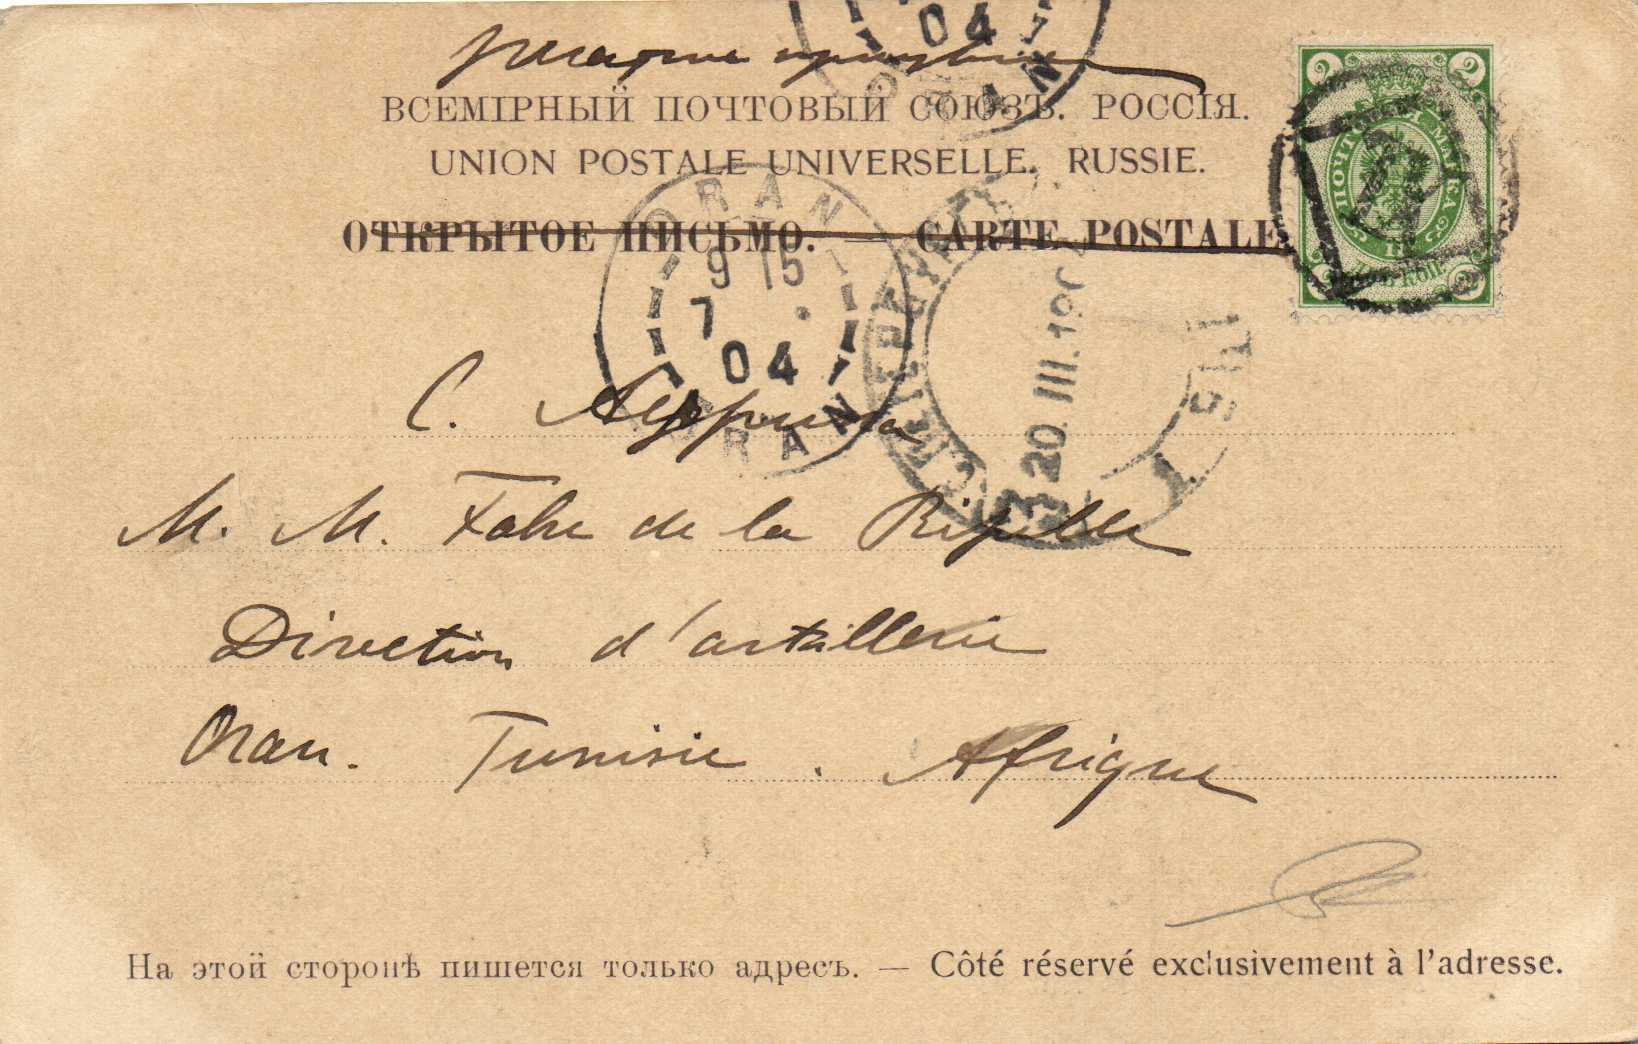 04
ORAN
ВСЕМІРНЫЙ ПОЧТОВЫЙ СОЮЗЪ. РОССІЯ.
UNION POSTALE UNIVERSELLE. RUSSIE.
ОТКРЫТОЕ ПИСЬМО. — CARTE POSTALE
2 2
ПОЧТОВАЯ МАРКА
ORAN
9 15
7
04
ORAN
20.III.190
С. Африка
M. M. Fabre de la Ripelle
Direction d'artillerie
Oran. Tunisie. Afrique
На этой сторонѣ пишется только адресъ. — Côté réservé exclusivement à l'adresse.